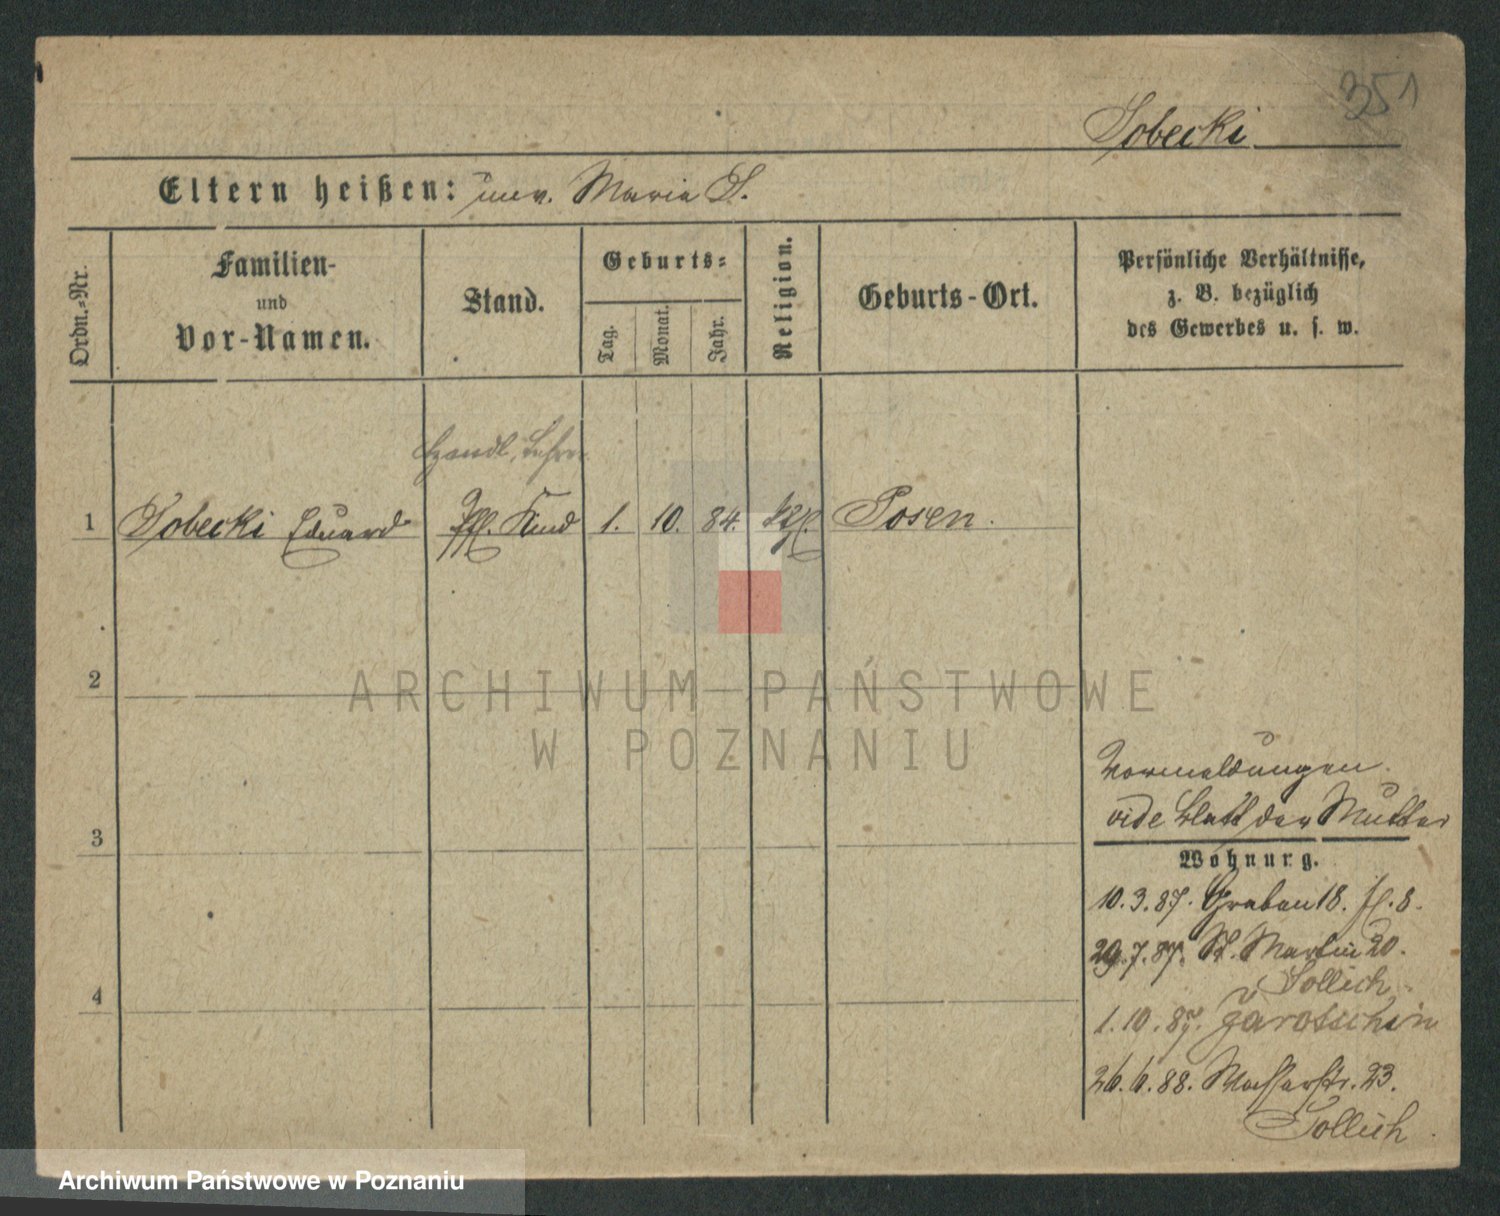 351
Sobecki
Eltern heißen: unv. Maria S.
Ordn.-Nr.
Familien-
und
Vor-Namen.
Stand.
Geburts-
Tag.
Monat.
Jahr.
Religion.
Geburts-Ort.
Persönliche Verhältnisse,
z. B. bezüglich
des Gewerbes u. s. w.
Handl. Lehrl.
1 Sobecki Eduard Kind 1. 10. 84. kth. Posen.
2
3
4
Vormeldungen
vide Blatt der Mutter
Wohnung.
10.3.87. Graben 18. 8.
29.7.87. St. Martin 20.
Sollich
1.10.87. Jarotschin
26.6.88. Wasserstr. 23.
Sollich
ARCHIWUM PAŃSTWOWE
W POZNANIU
Archiwum Państwowe w Poznaniu